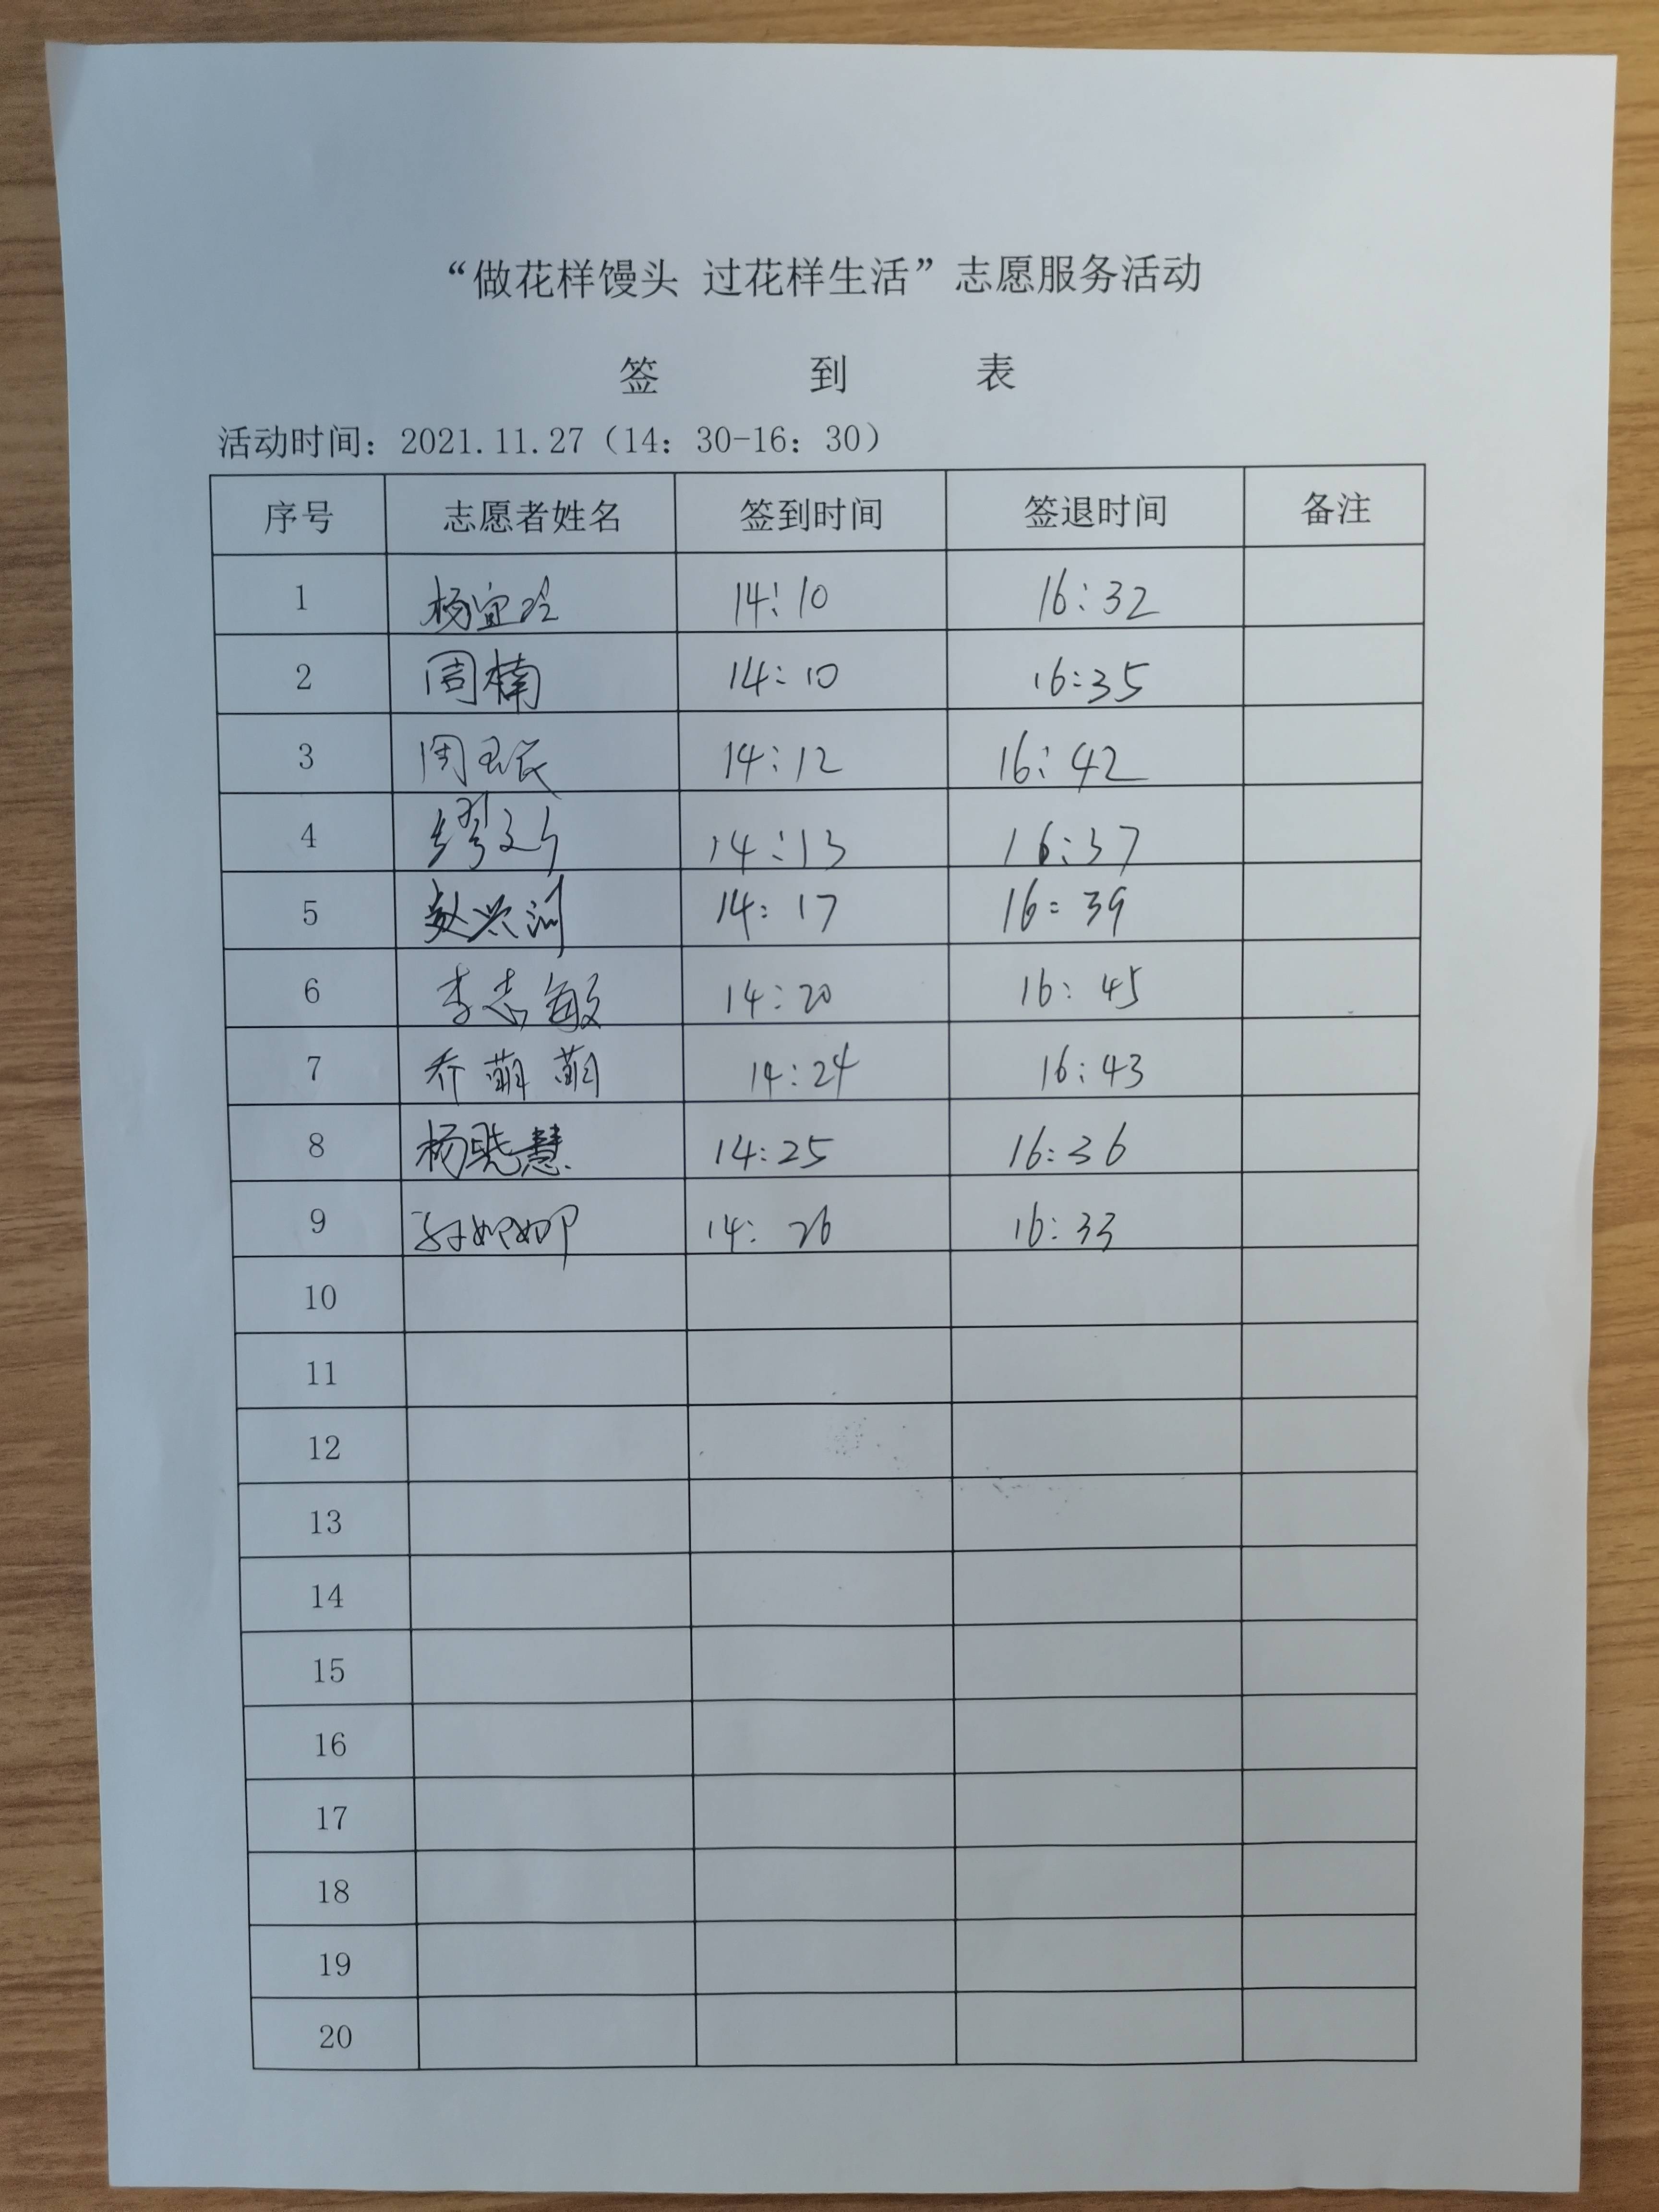 “做花样馒头 过花样生活”志愿服务活动
签 到 表
活动时间：2021.11.27（14：30-16：30）
序号 志愿者姓名 签到时间 签退时间 备注
1 杨宜玲 14:10 16:32
2 周楠 14:10 16:35
3 周 14:12 16:42
4 缪 14:13 16:37
5 赵兴润 14:17 16:39
6 李志敏 14:20 16:45
7 乔萌萌 14:24 16:43
8 杨晓慧 14:25 16:36
9 孙娜娜 14:26 16:33
10
11
12
13
14
15
16
17
18
19
20